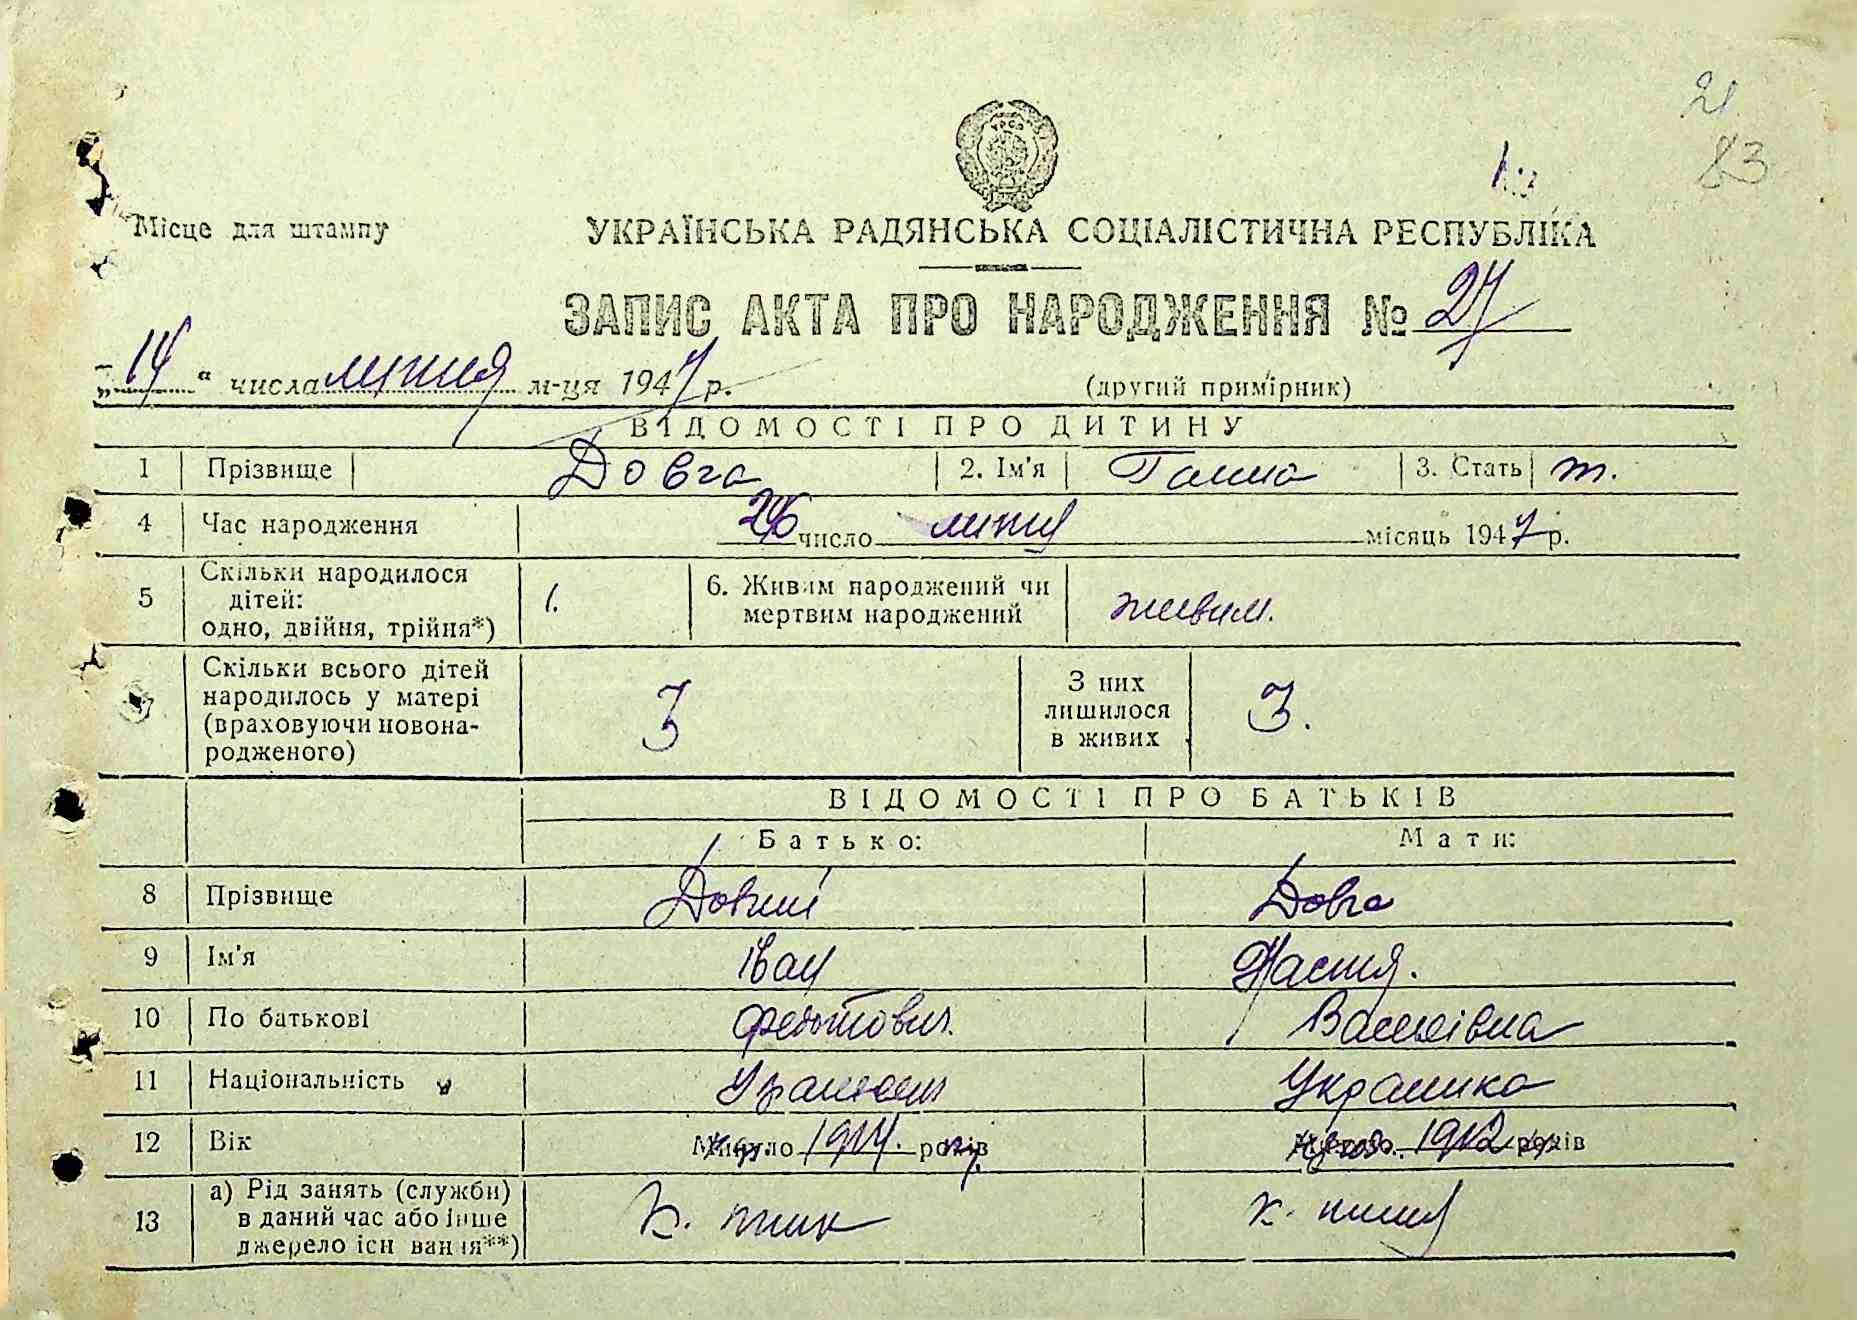 21
83
Місце для штампу
УКРАЇНСЬКА РАДЯНСЬКА СОЦІАЛІСТИЧНА РЕСПУБЛІКА
ЗАПИС АКТА ПРО НАРОДЖЕННЯ № 27
„14“ числа липня м-ця 1947 р. (другий примірник)
ВІДОМОСТІ ПРО ДИТИНУ
1 Прізвище Довга 2. Ім'я Галина 3. Стать
4 Час народження число липня місяць 1947 р.
5 Скільки народилося дітей: одно, двійня, трійня*) 1. 6. Живим народжений чи мертвим народжений живим.
7 Скільки всього дітей народилось у матері (враховуючи новонародженого) 3 З них лишилося в живих 3.
ВІДОМОСТІ ПРО БАТЬКІВ
Батько: Мати:
8 Прізвище Довгий Довга
9 Ім'я Іван Настя.
10 По батькові Федотович. Василівна
11 Національність Українець Українка
12 Вік Минуло 1914. років 1912 років
13 а) Рід занять (служби) в даний час або інше джерело існування**) к. к.